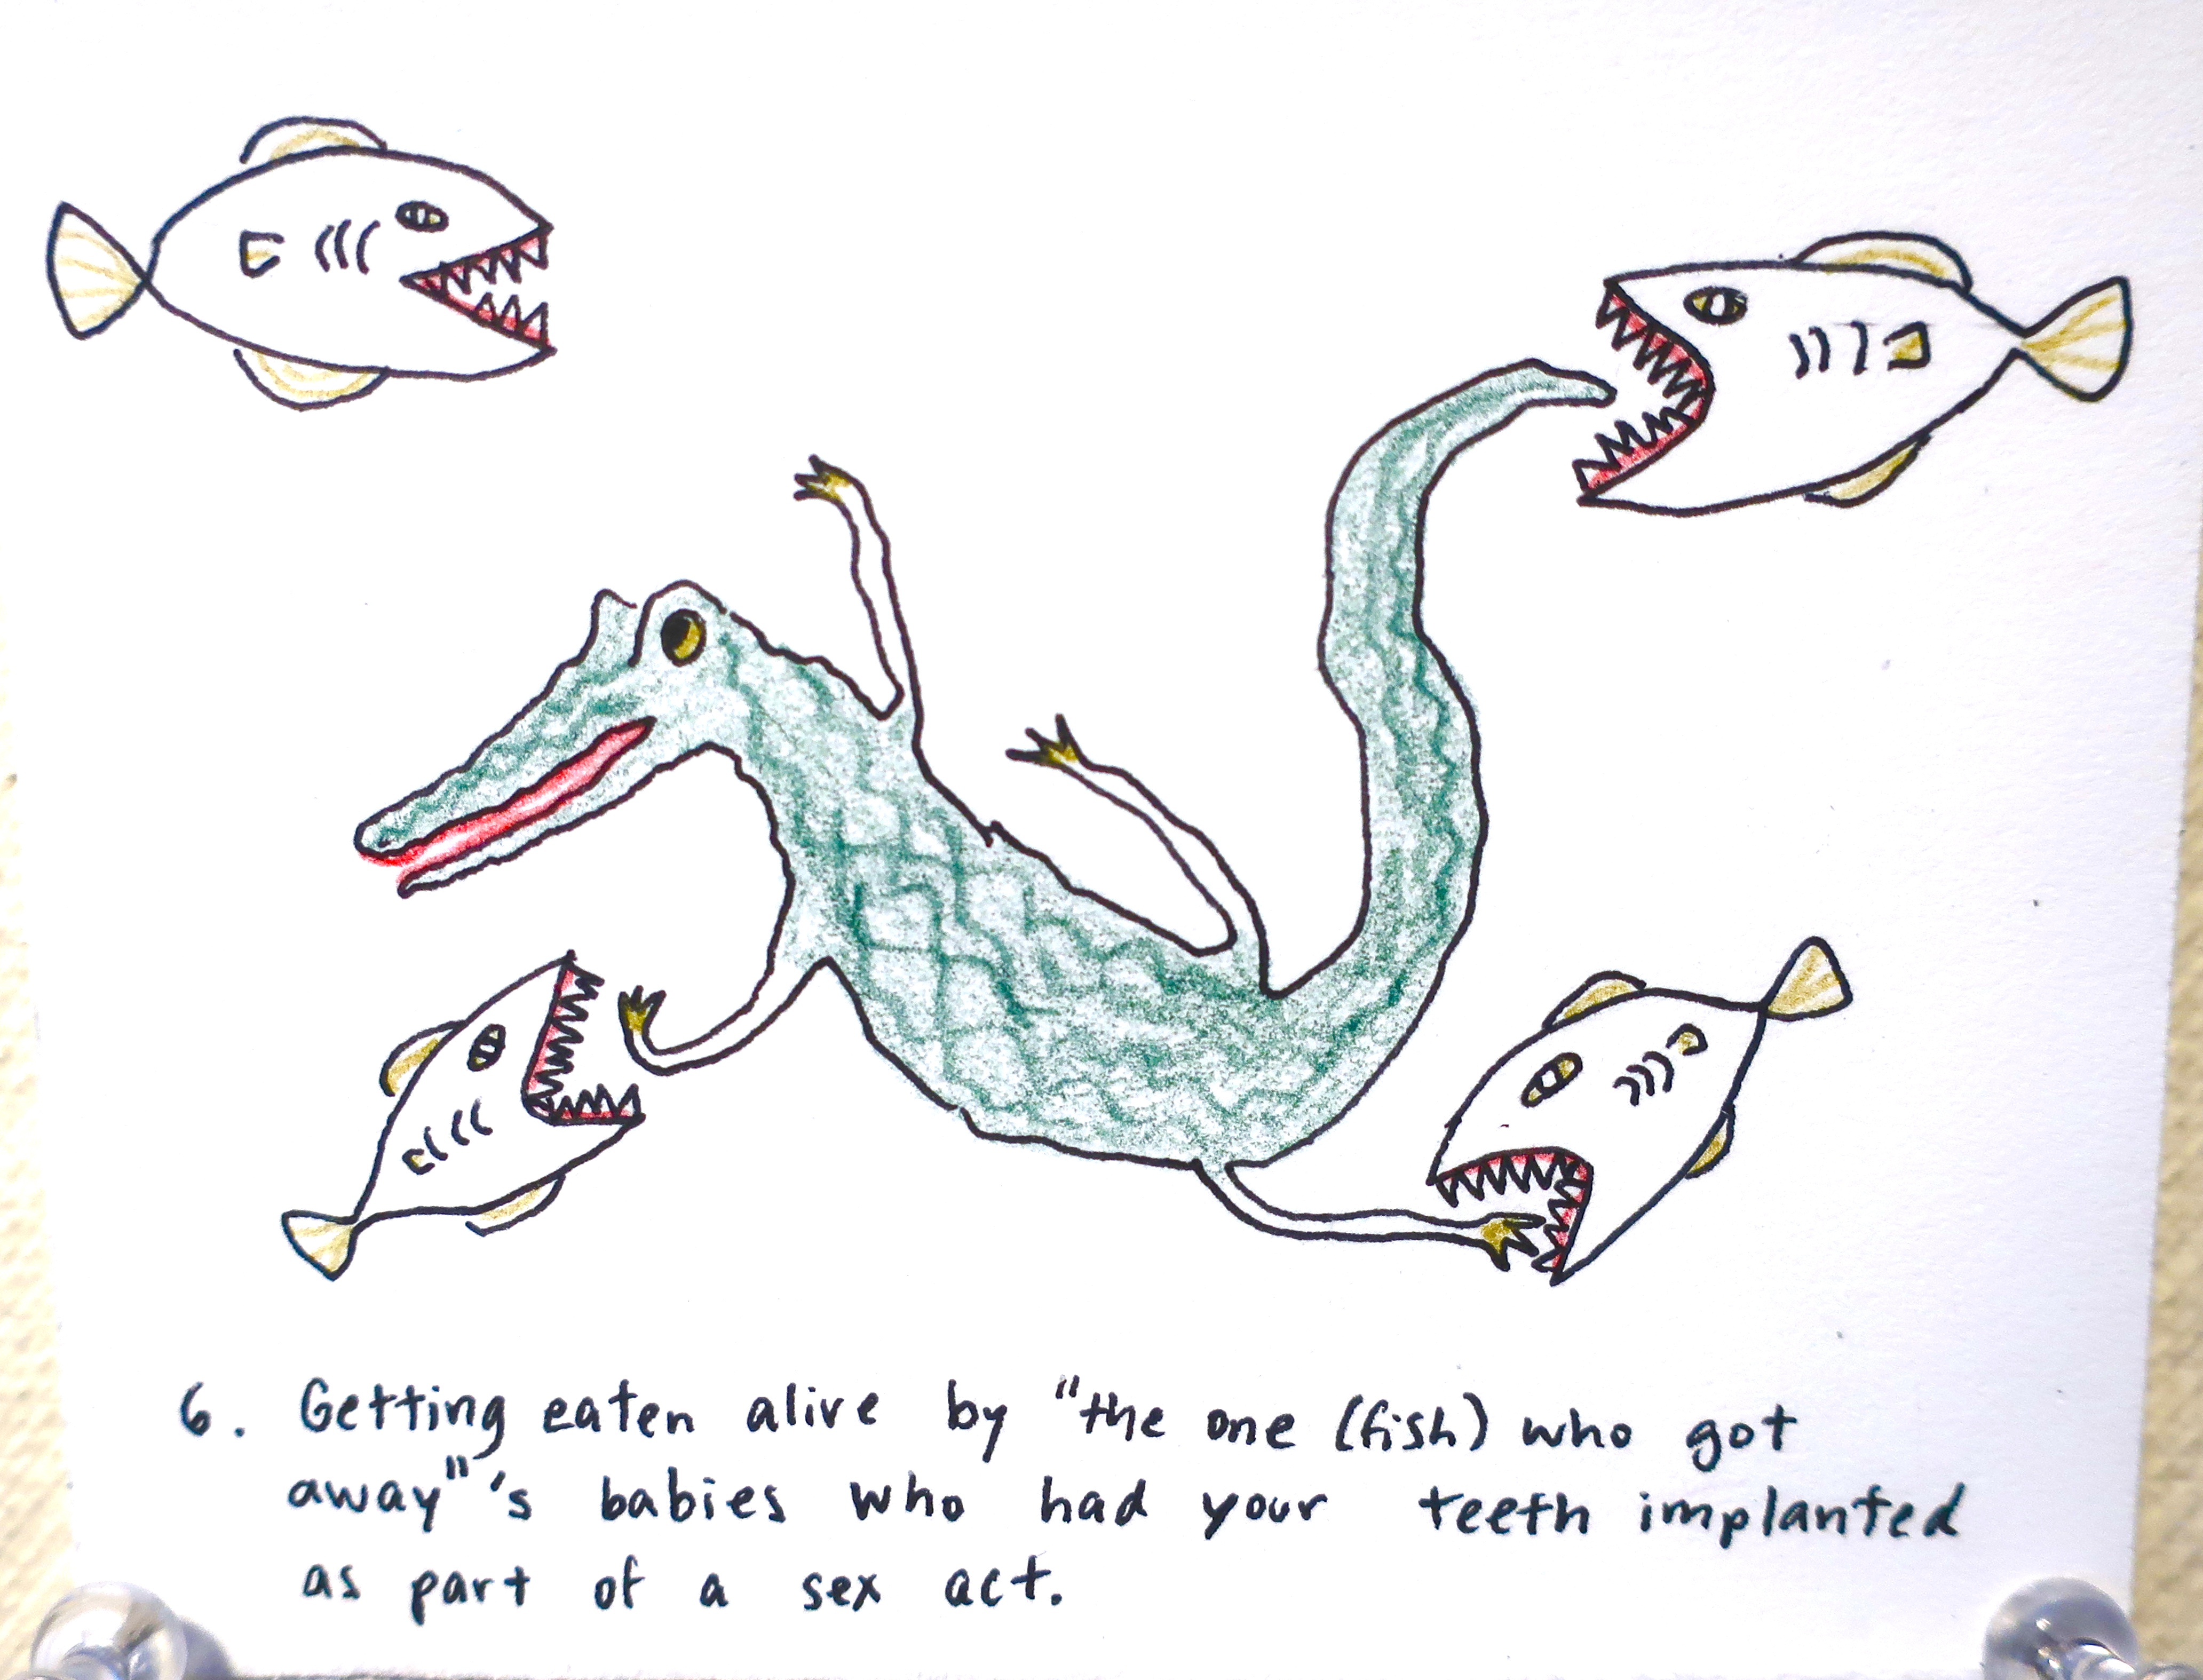 6. Getting eaten alive by "the one (fish) who got
away"'s babies who had your teeth implanted
as part of a sex act.